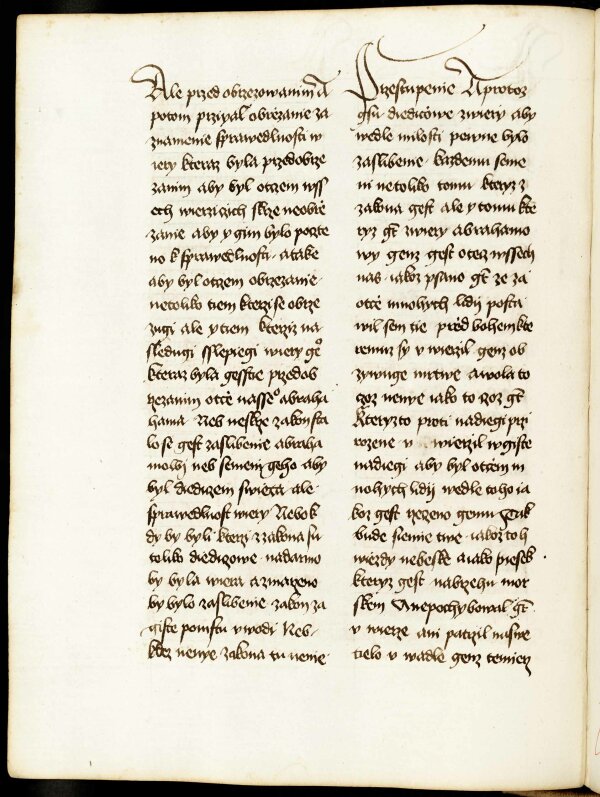 Ale przed obrzezowanim A
potom prziyal obrzezanie za
znamenie sprawedlnosti w
iery kteraz byla przedobrze
zanim aby byl otczem wss
ech wierziczich skrze neobrze
zanie aby y gim bylo poczte
no k sprawedlnosti · a take
aby byl otczem obrzezanie
netoliko tiem kterzi se obrze
zugi ale y tiem kterziz na
sledugi sslepiegi wiery geo
kteraz byla gesstie przedob
rzezanim otcze nasseo abraha
hama Neb neskrze zakon sta
lo se gest zaslibenie abraha
mowi neb semeni geho aby
byl diediczem swieta · ale
sprawedlnost wiery Nebo k
dy by byli kterzi z zakona su
toliko diediczowe · nadarmo
by byla wiera a zmarzeno
by bylo zaslibenie · zakon za
giste pomstu v wodi Neb
kdez nenye zakona tu nenie
Przestupenie A protoz
gsu diediczowe z wiery aby
wedle milosti pewne bylo
zaslibenie kazdemu seme
ni netoliko tomu kteryz z
zakona gest ale y tomu kte
ryz gt z wiery abrahamo
wy genz gest otecz wssech
nas iakoz psano gt ze za
otcze mnohych lidij posta
wil sem tie przed bohem kte
remuz sy v wierzil genz ob
zywuge mrtwe a wola to
czoz nenye iako to czoz gt
Kteryzto proti nadiegi przi
rozene v wierzil w giste
nadiegi aby byl otczem m
nohych lidij wedle toho ia
koz gest rzeczeno gemu Tak
bude siemie twe iakozto h
wiezdy nebeske a iako piesek
kteryz gest nabrzehu mor
skem A nepochybowal gt
v wierze ani patrzil na swe
tielo v wadle genz temierz